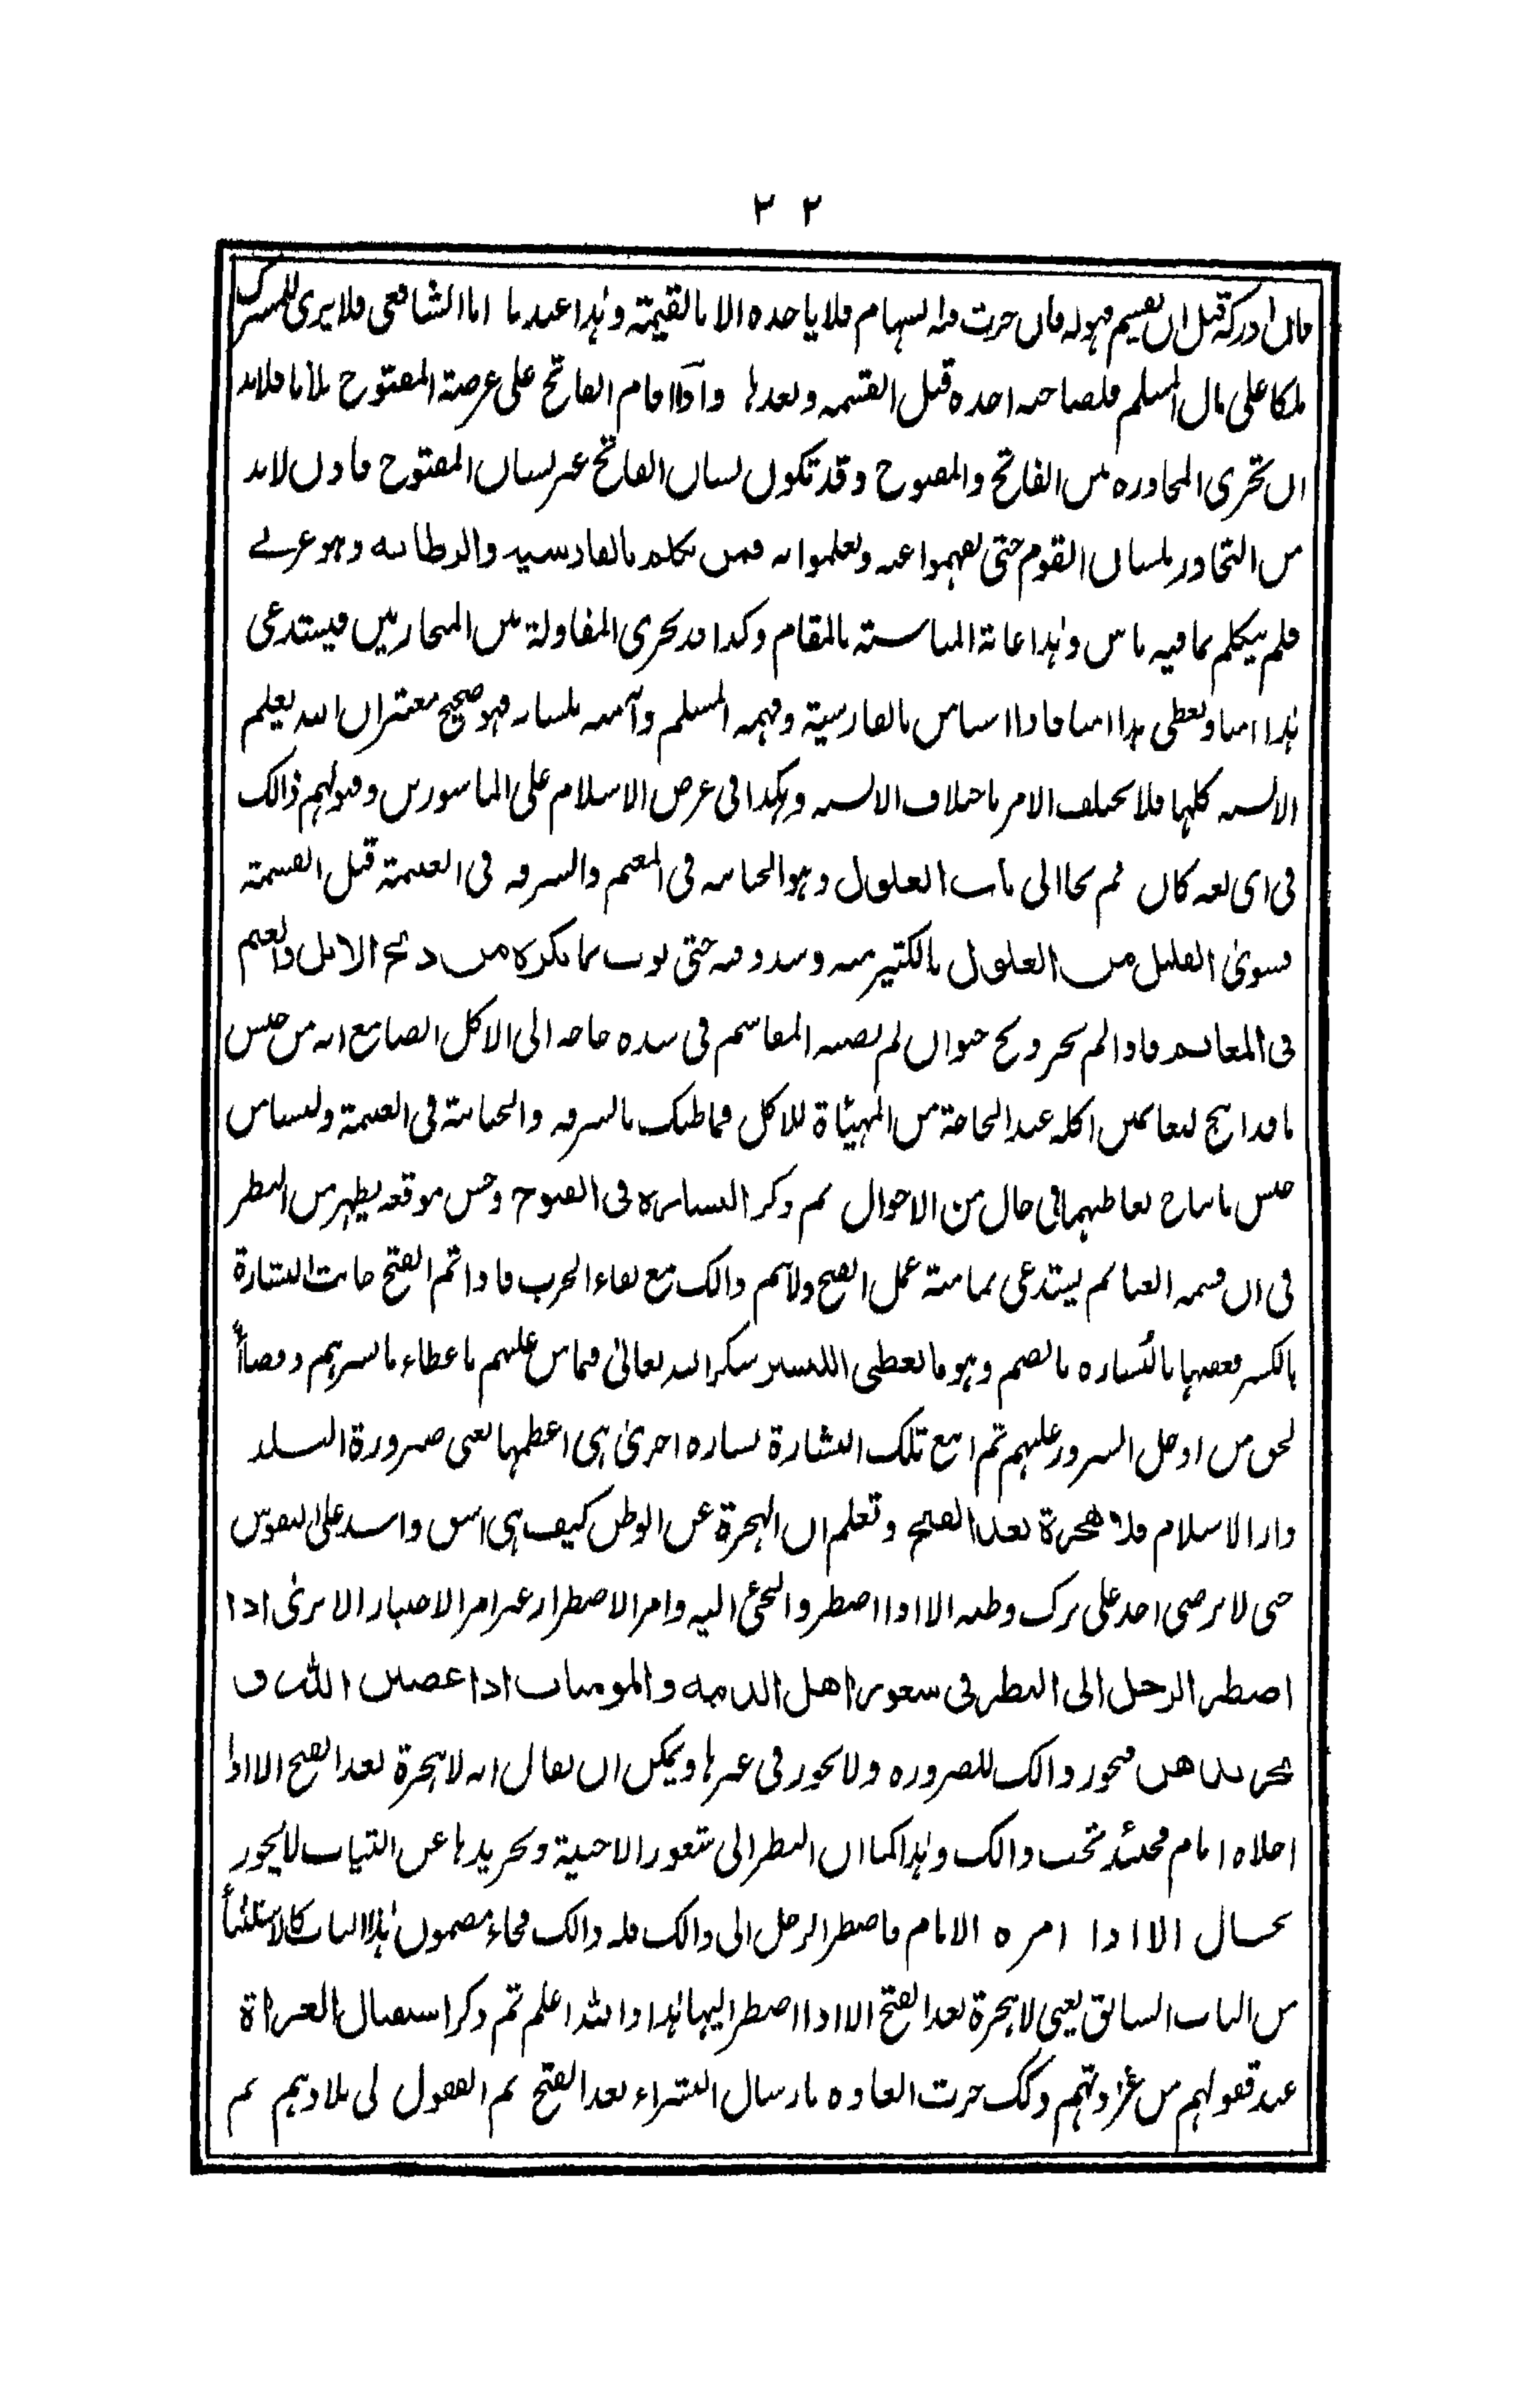 ٢ ٢
فان ادركه قبل ان يقسيم فهو له فان جرت فيه السهام فلا ياخذه الا بالقيمة وهذا عندنا اما الشافعى فلا يرى للمشرك
ملكا على مال المسلم فلصاحبه اخذه قبل القسمه وبعدها واذا قام الفاتح على عرصة المفتوح فلابد
ان تجرى المحاوره بين الفاتح والمفتوح وقد تكون لسان الفاتح غير لسان المفتوح فاذن لابد
من التحاور بلسان القوم حتى يفهموا عنه ويعلموا به فمن تكلم بالفارسيه والرطانه وهو عربے
فلم يتكلم بما فيه باس وهذا غاية المناسبته بالمقام وكذا قد يجرى المقاولة بين المحاربين فيستدعى
هذا امنا ويعطى هذا امنا فاذا استامن بالفارسية وفهمه المسلم وآمنه بلسانه فهو صحيح معتبر ان الله يعلم
الالسنه كلها فلا يختلف الامر باختلاف الالسنه وهكذا فى عرض الاسلام على الماسورين وقبولهم ذالك
فى اى لغه كان ثم نحا الى باب الغلول وهو الخيانه فى المغنم والسرقه فى الغنيمة قبل القسمة
فسوىٰ القليل من الغلول بالكثير منه حتى بوب بما يكره من ذبح الابل والغنم
فى المغانم فاذا لم يجز ذبح حيوان لم تصبه المقاسم فى شده حاجه الى الاكل الصايع انه من جنس
ما قد ابيح للغانمين اكله عند الحاجة من المهيئاة للاكل فما ظنك بالسرقه والخيانة فى الغنيمة وليسا من
جنس ما يباح تعاطيهما فى حال من الاحوال ثم ذكر البشاره فى الفتوح وحسن موقعه يظهر من النظر
فى ان قسمه الغنائم يستدعى تمامية عمل الفتح ولا يتم ذالك مع بقاء الحرب فاذا تم الفتح جائت البشارة
بالكسر فعقبها بالبُشاره بالضم وهو ما يعطى للبشير شكرا لله تعالىٰ فيما من عليهم باعطاء ما يسرهم وقضاءً
لحق من ادخل السرور عليهم ثم اتبع تلك البشارة بشاره اخرىٰ هى اعظمها يعنى صيرورة البلد
دار الاسلام فلا هجرة بعد الفتح وتعلم ان الهجرة عن الوطن كيف هى اشق واشد على النفوس
حتى لا يرضى احد على ترك وطنه الا اذا اضطر والتجئ اليه وامر الاضطرار غير امر الاختيار الا ترىٰ اذا
اضطر الرجل الى النظر فى شعور اهل الذمه والمومنات اذا عصين الله و
تجريدهن فيجوز ذالك للضروره ولا يجوز فى غيرها ويمكن ان يقال انه لا هجرة بعد الفتح الا اذا
اجلاه امام فحينئذ تجب ذالك وهذا كما ان النظر الى شعور الاجنبية وتجريدها عن الثياب لا يجوز
بحال الا اذا امره الامام فاضطر الرجل الى ذالك فله ذالك فجاء مضمون هذا الباب كالاستثناء
من الباب السابق يعنى لا هجرة بعد الفتح الا اذا اضطر اليها هذا والله اعلم ثم ذكر استقبال الغزاة
عند قفولهم من غزوتهم وذلك جرت العاده بارسال البشراء بعد الفتح ثم القفول الى بلادهم ثم